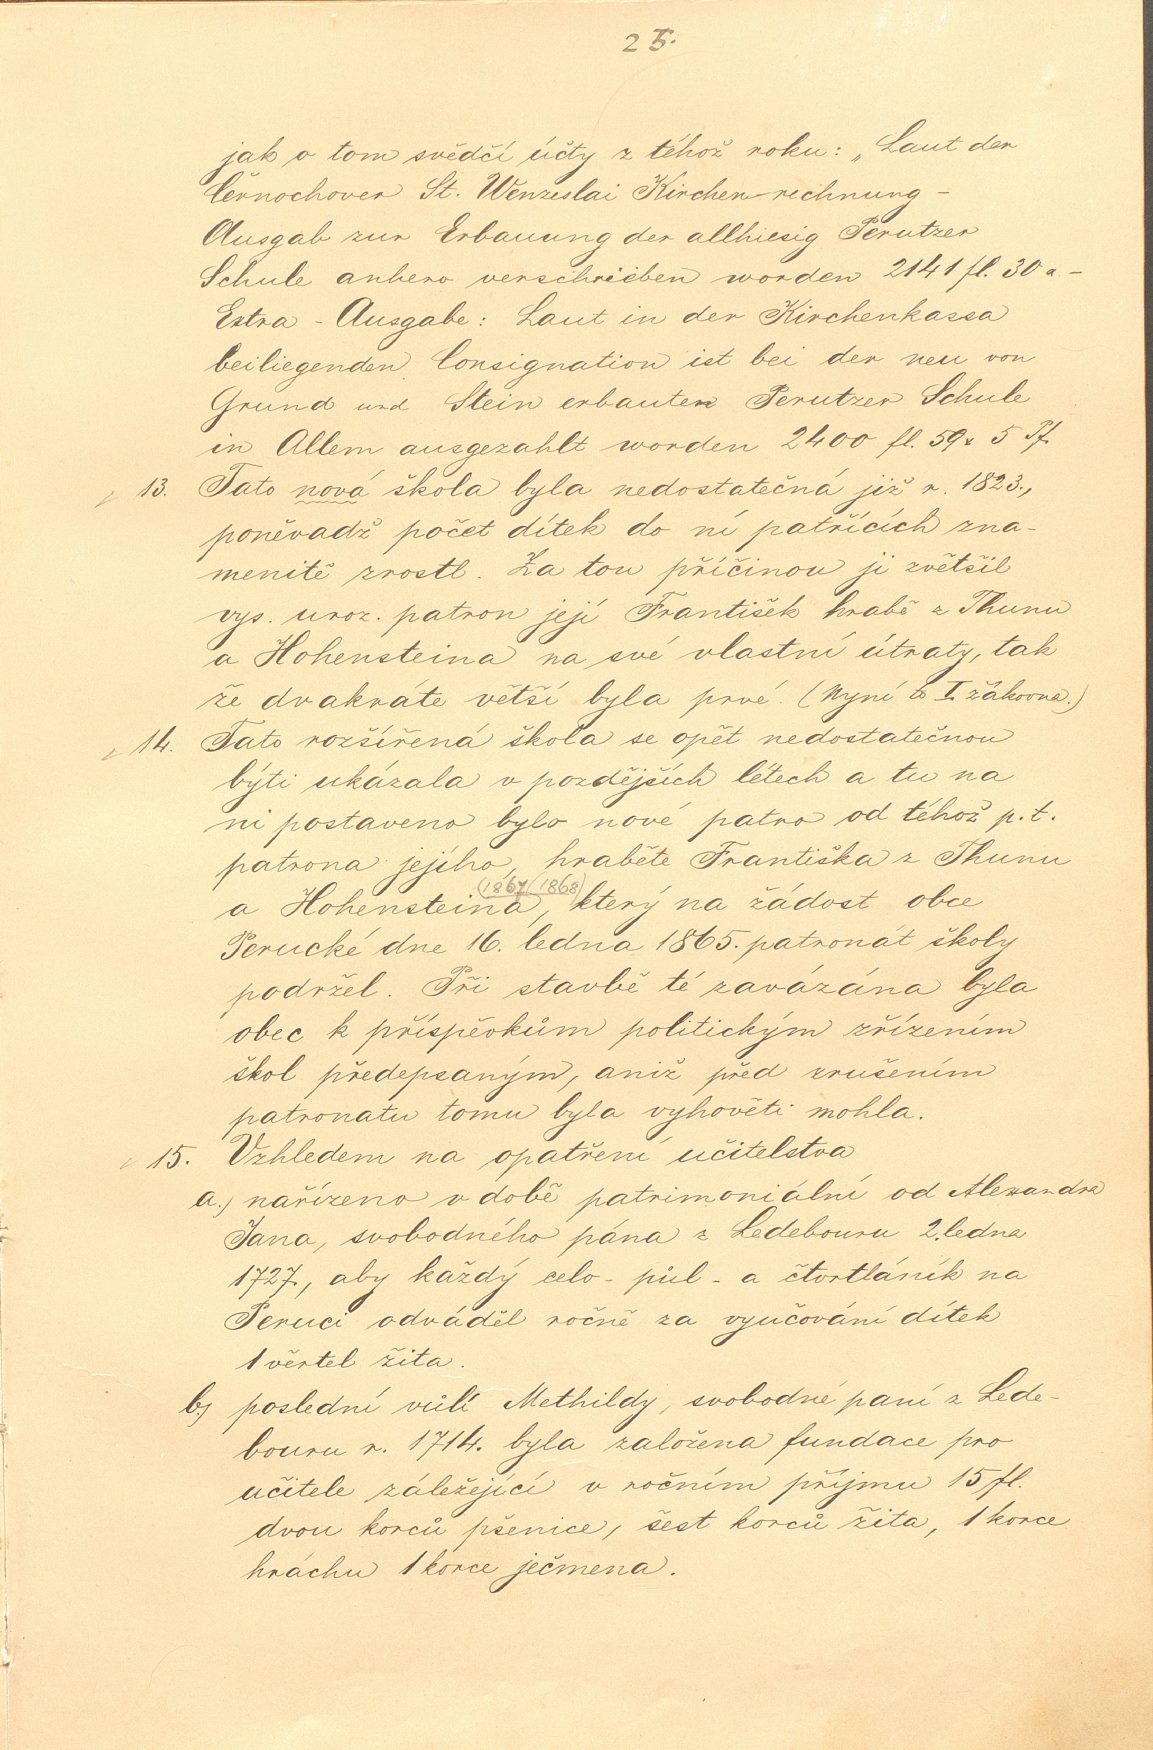 25.
jak o tom svědčí účty z téhož roku: „Laut der
Černochover St. Wenzeslai Kirchen-rechnung -
Ausgab zur Erbauung der allhiesig Perutzer
Schule anhero verschrieben worden 2141 fl. 30 x -
Extra - Ausgabe: Laut in der Kirchenkassa
beiliegenden Consignation ist bei der neu von
Grund und Stein erbauten Perutzer Schule
in Allem ausgezahlt worden 2400 fl. 59x 5 Pf.
13. Tato nová škola byla nedostatečná již r. 1823.,
poněvadž počet dítek do ní patřících zna-
menitě zrostl. Za tou příčinou ji zvětšil
vys. uroz. patron její František hrabě z Thunu
a Hohensteina na své vlastní útraty, tak
že dvakráte větší byla prvé. (Nyní to I žákovna.)
14. Tato rozšířená škola se opět nedostatečnou
býti ukázala v pozdějších létech a tu na
ni postaveno bylo nové patro od téhož p. t.
patrona jejího, hraběte Františka z Thunu
(1867/1868)
a Hohensteina, který na žádost obce
Perucké dne 16. ledna 1865. patronát školy
podržel. Při stavbě té zavázána byla
obec k příspěvkům politickým zřízením
škol předepsaným, aniž před zrušením
patronatu tomu byla vyhověti mohla.
15. Vzhledem na opatření učitelstva
a.) nařízeno v době patrimoniální od Alexandra
Jana, svobodného pána z Ledebouru 2. ledna
1727., aby každý celo- půl- a čtvrtláník na
Peruci odváděl ročně za vyučování dítek
1 věrtel žita.
b.) poslední vůlí Methildy, svobodné paní z Lede-
bouru r. 1714. byla založena fundace pro
učitele záležející v ročním příjmu 15 fl.
dvou korců pšenice, šest korců žita, 1 korce
hráchu 1 korce ječmena.